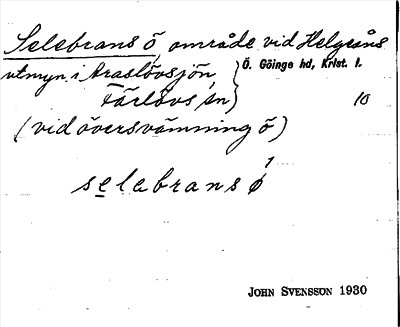 Selebrans ö, område vid Helgeåns
utmyn. i Araslövsjön, Ö. Göinge hd, Krist. l.
Färlövs sn) 10
(vid översvämning ö)
selebransø 1
JOHN SVENSSON 1930